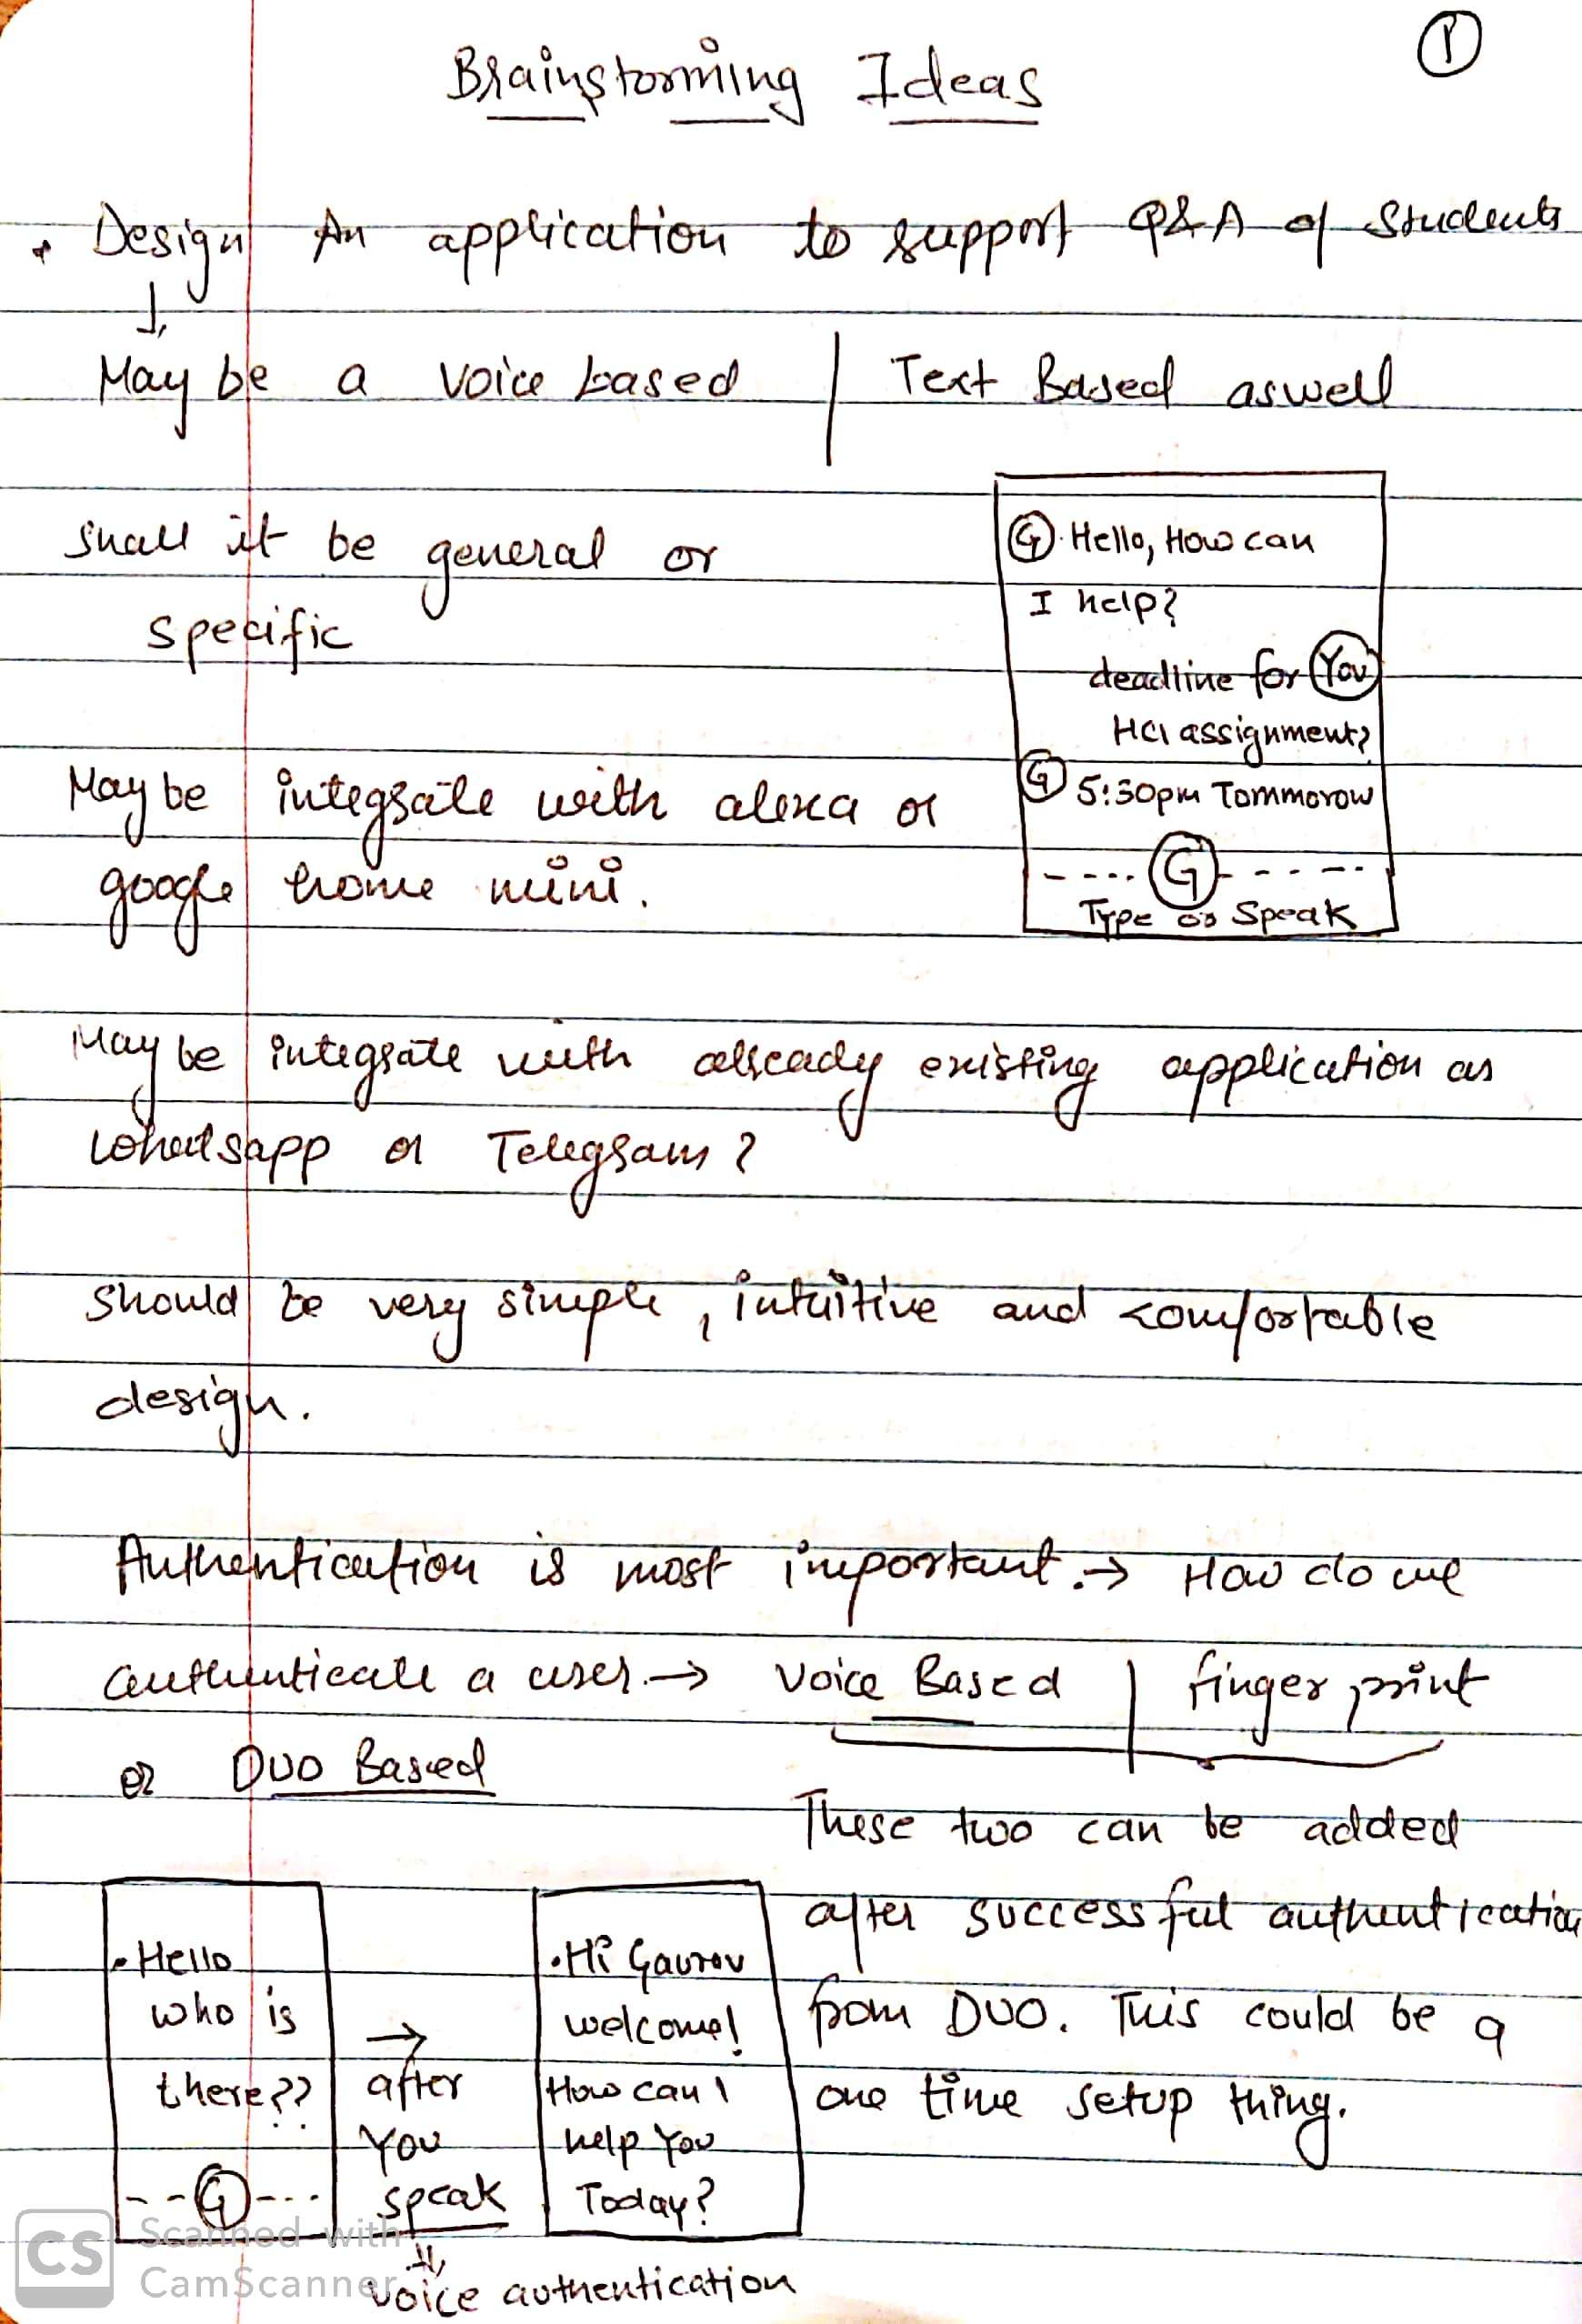 Brainstorming Ideas
1
Design An application to support Q&A of Students
May be a voice based | Text Based aswell
Shall it be general or
specific
G Hello, How can
I help?
deadline for You
HCI assignment?
G 5:30pm Tommorow
---- G -----
Type or Speak
May be integrate with alexa or
google home mini.
May be integrate with already existing application as
Whatsapp or Telegram?
Should be very simple, intuitive and comfortable
design.
Authentication is most important. → How do we
authenticate a user. → Voice Based | finger print
or DUO Based
These two can be added
after successful authentication
from DUO. This could be a
one time setup thing.
• Hello
who is
there??
--G---
→
after
You
speak
voice authentication
• Hi Gaurav
welcome!
How can I
help You
Today?
CS Scanned with
CamScanner